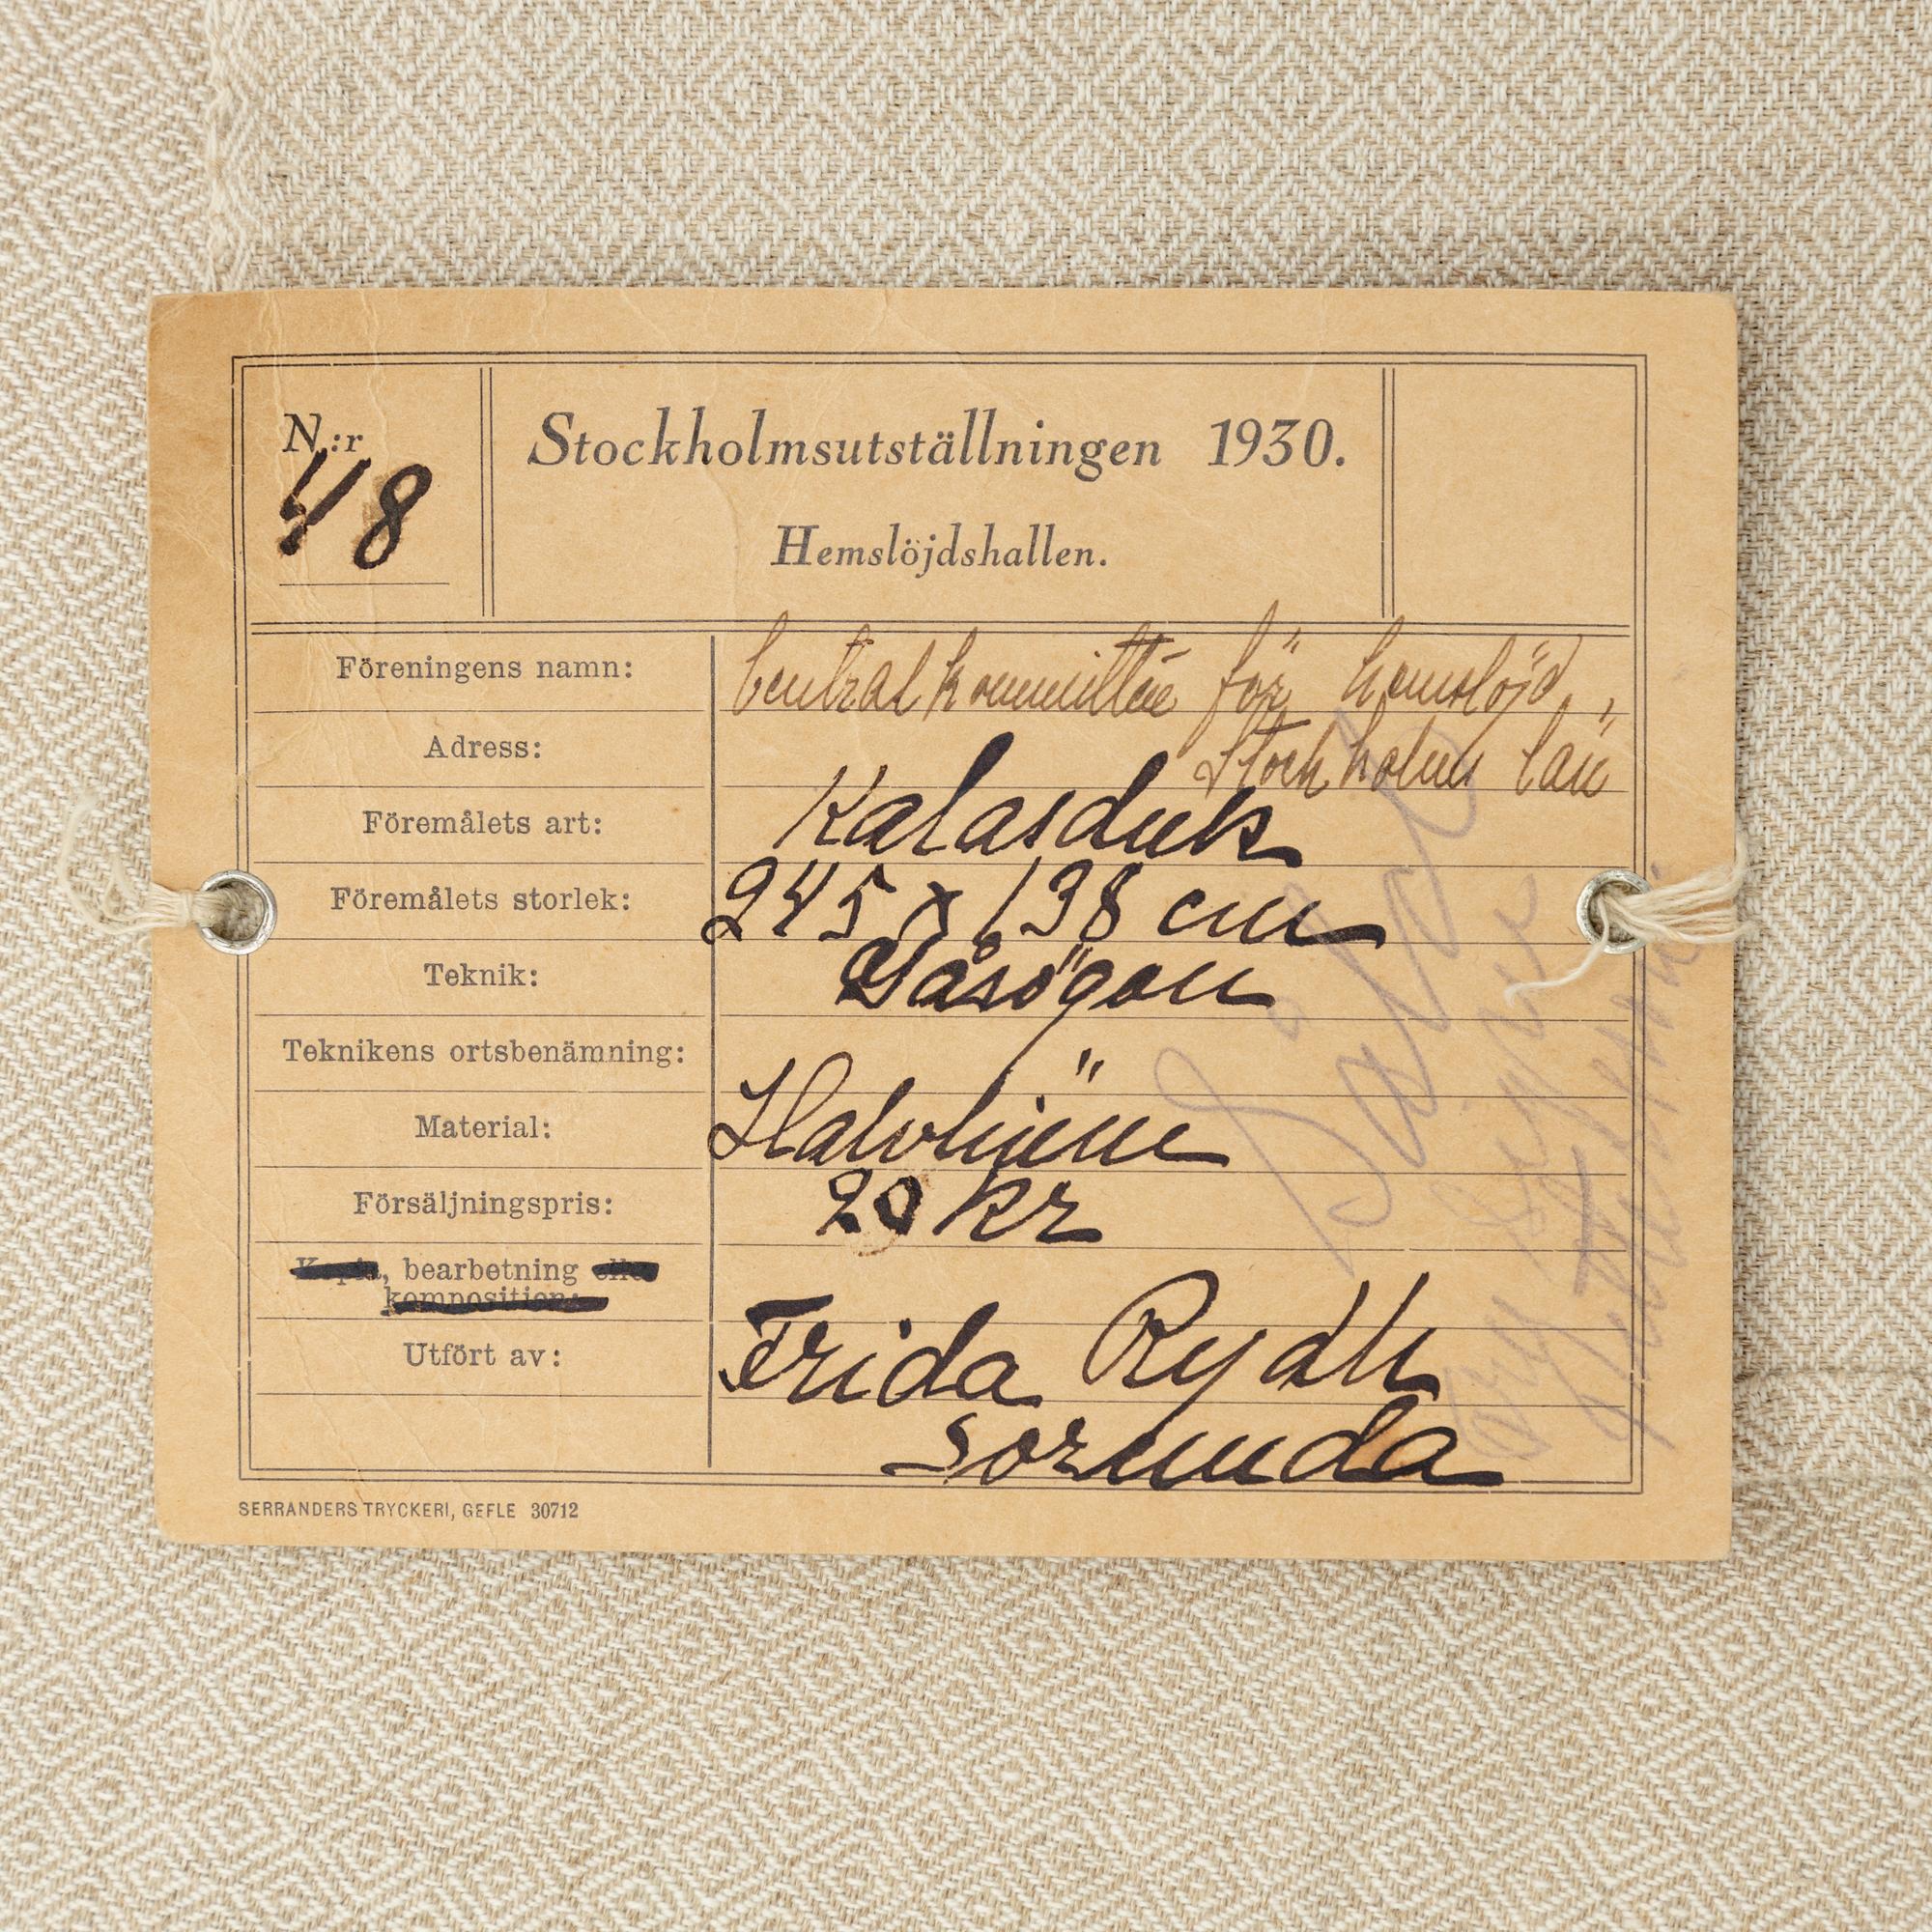 N:r
48
Stockholmsutställningen 1930.
Hemslöjdshallen.
Föreningens namn: Centralkommittén för hemslöjd,
Adress: Stockholms län
Föremålets art: Kalasduk
Föremålets storlek: 245 x 138 cm
Teknik: Gåsögon
Teknikens ortsbenämning:
Material: Halvlinne
Försäljningspris: 20 kr
Kopia, bearbetning eller
komposition:
Utfört av: Frida Rydh
Sorunda
Såld
SERRANDERS TRYCKERI, GEFLE 30712